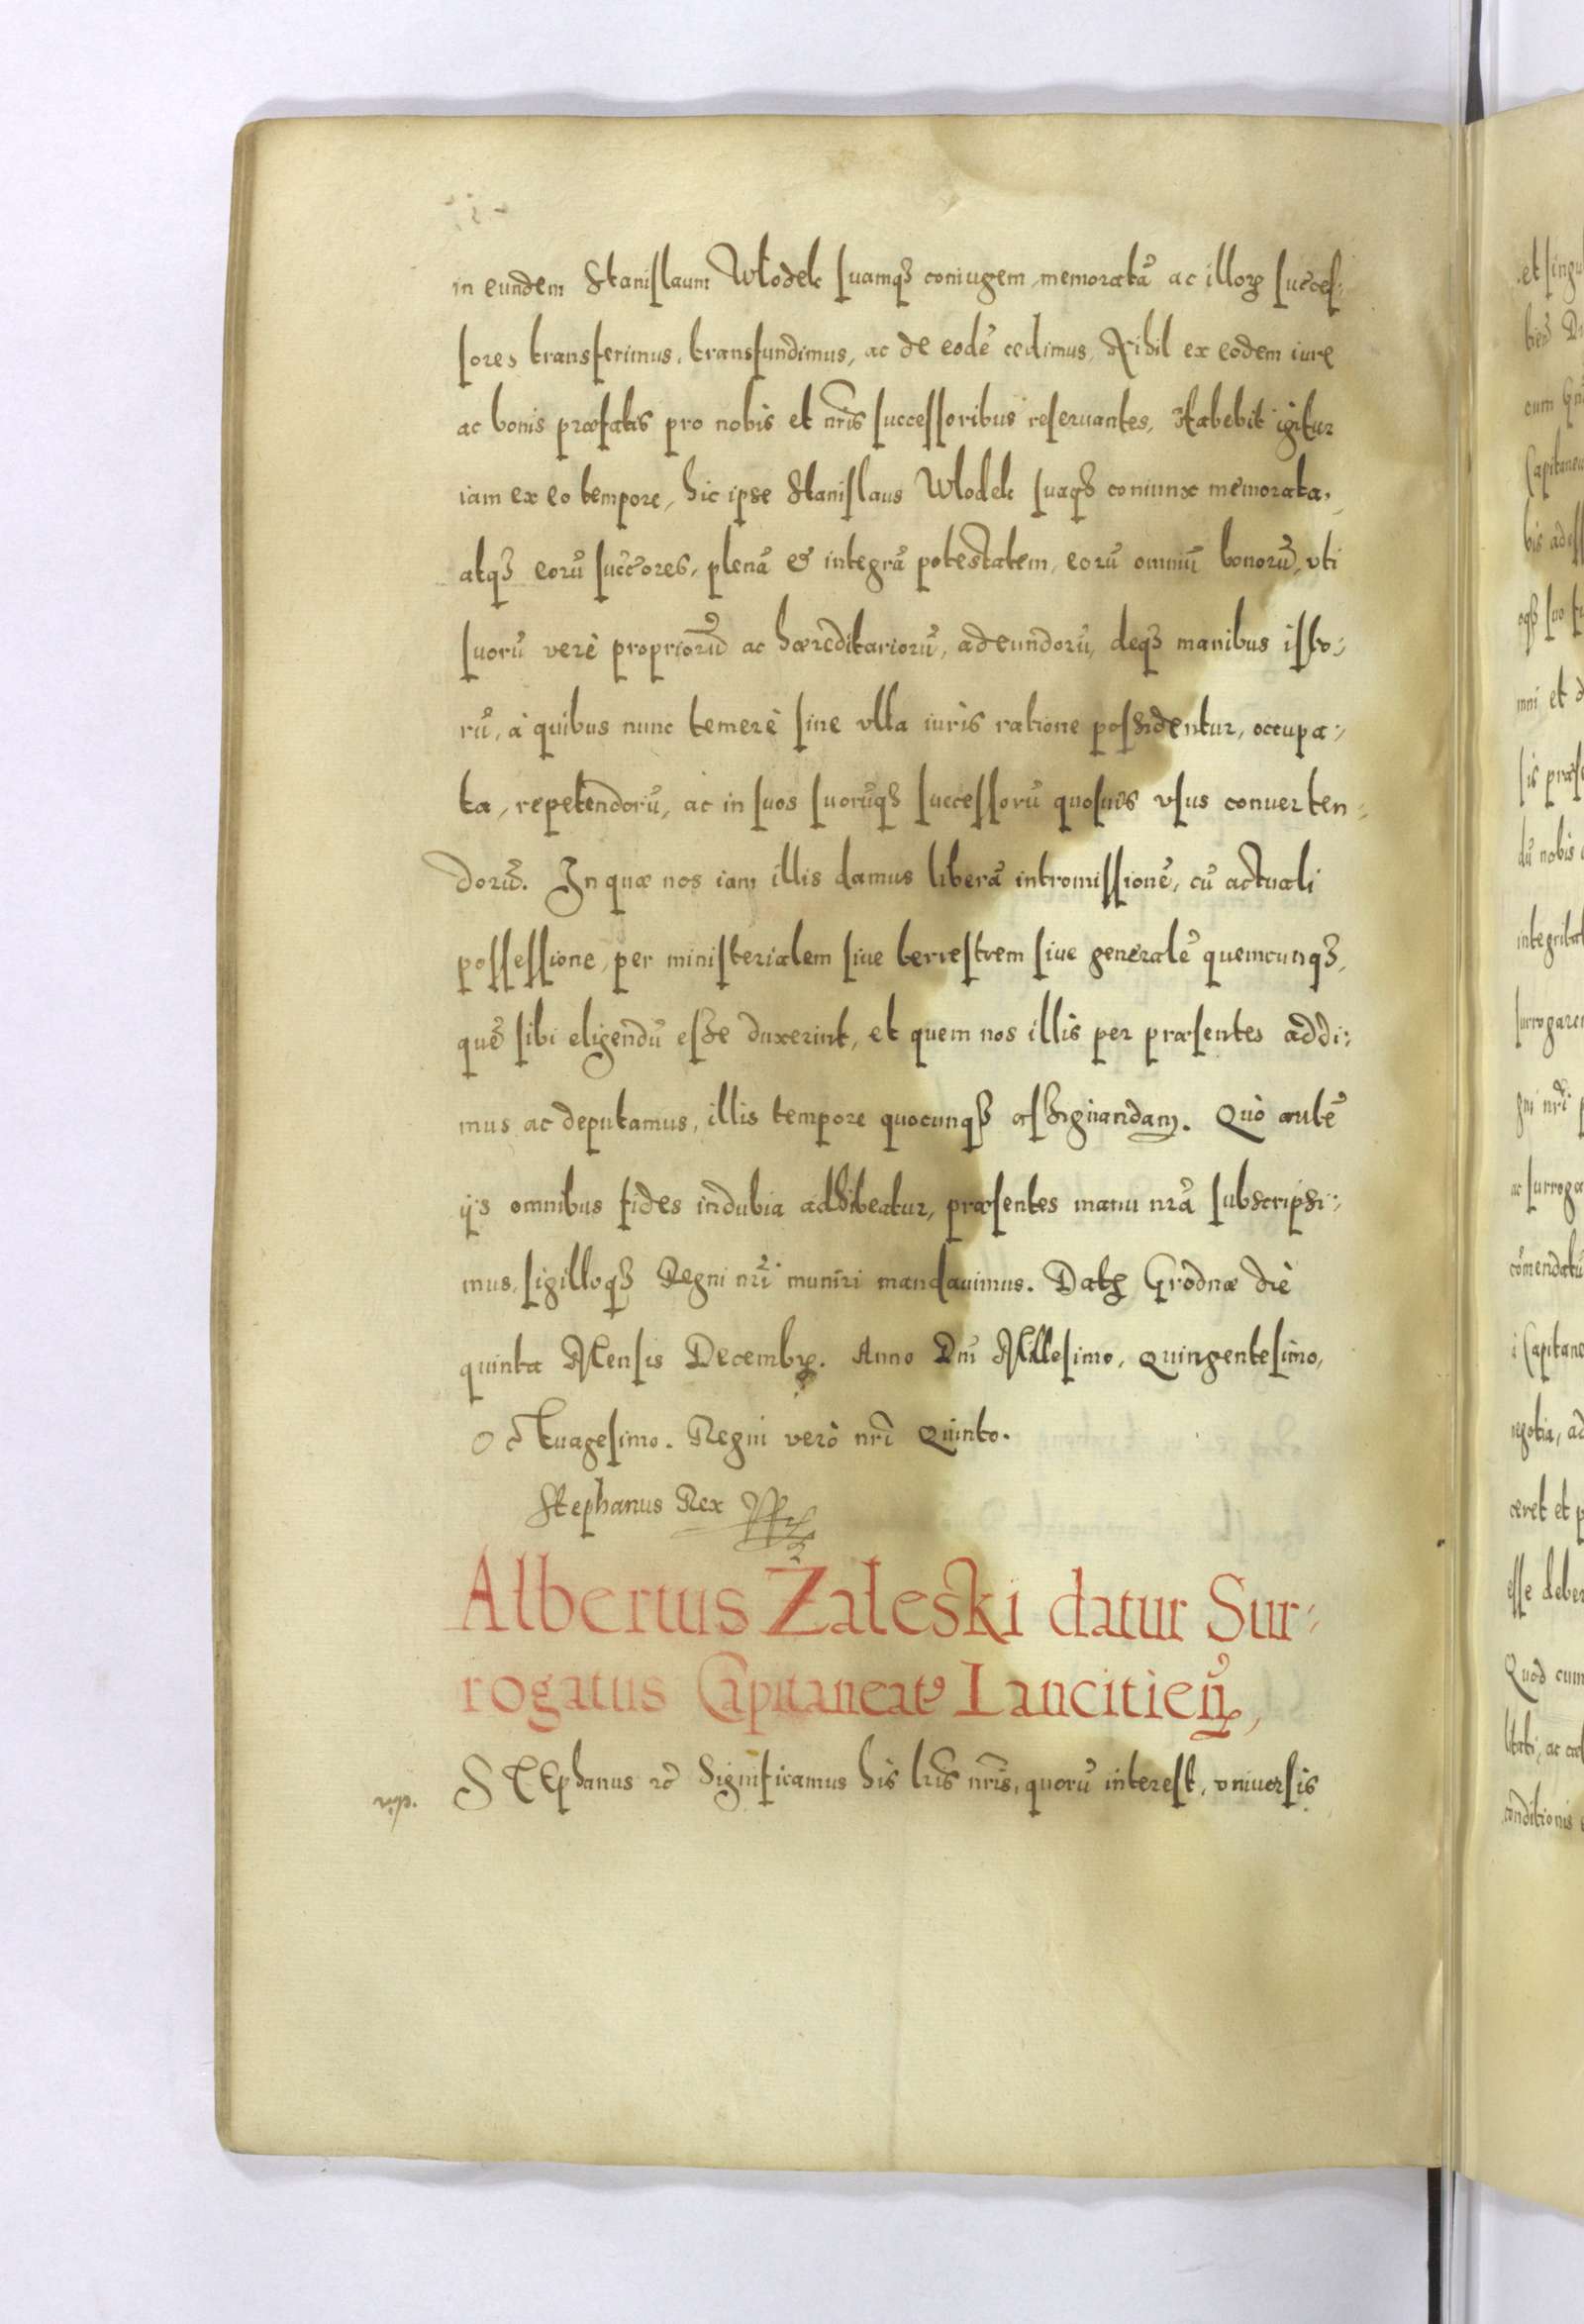 in eundem Stanislaum Włodek suamqꝫ coniugem memoratā ac illorꝝ succes⸗
sores transferimus, transfundimus, ac de eodē cedimus, Nihil ex eodem iure
ac bonis præfatis pro nobis et nr̃is successoribus reseruantes, Habebit igitur
iam ex eo tempore, hic ipse Stanislaus Włodek suaqꝫ coniunx memorata,
atqꝫ eorū succ̃ores, plenā & integrā potestatem, eorū omniū bonorū, vti
suorū verè propriorū ac hæreditariorū, adeundorū, deqꝫ manibus isto⸗
rū, à quibus nunc temerè sine vlla iuris ratione possidentur, occupa⸗
ta, repetendorū, ac in suos suorūqꝫ successorū quosuis vsus conuerten⸗
dorū. In quæ nos iam illis damus liberā intromissionē, cū actuali
possessione, per ministerialem siue terrestrem siue generalē quemcunqꝫ,
quē sibi eligendū esse duxerint, et quem nos illis per præsentes addi⸗
mus ac deputamus, illis tempore quocunqꝫ assignandam. Quò autē
ijs omnibus fides indubia adhibeatur, præsentes manu nr̃a subscripsi⸗
mus, sigilloqꝫ Regni nr̃i muniri mandauimus. Datꝝ Grodnæ die
quinta Mensis Decembꝝ. Anno Dni Millesimo, Quingentesimo,
Octuagesimo. Regni verò nr̃i Quinto.
Stephanus Rex
Albertus Żaleski datur Sur⸗
rogatus Capitaneatꝰ Lancitieñ,
STEphanus ꝛc̃ Significamus his lr̃is nr̃is, quorū interest, vniuersis